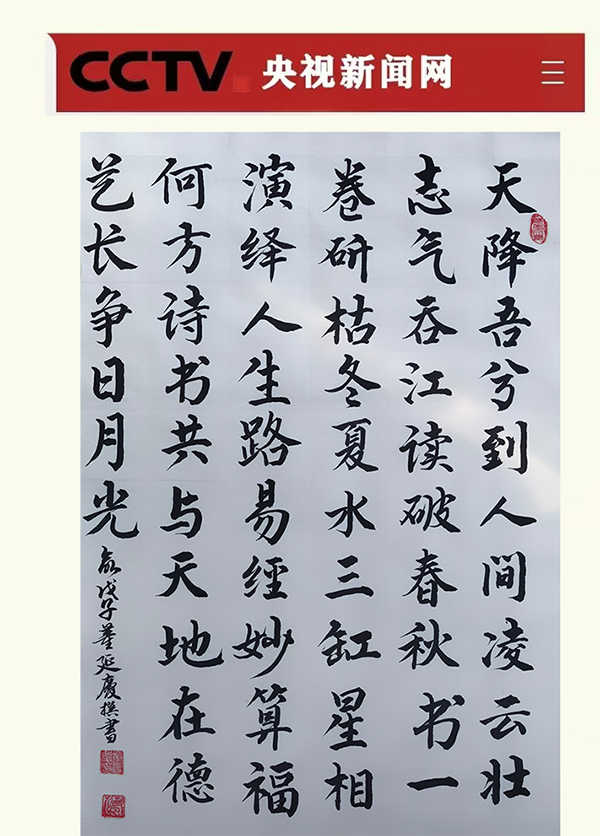 CCTV 央视新闻网
天降吾兮到人间凌云壮
志气吞江读破春秋书一
卷研枯冬夏水三缸星相
演绎人生路易经妙算福
何方诗书共与天地在德
艺长争日月光
戊子董延庆撰书